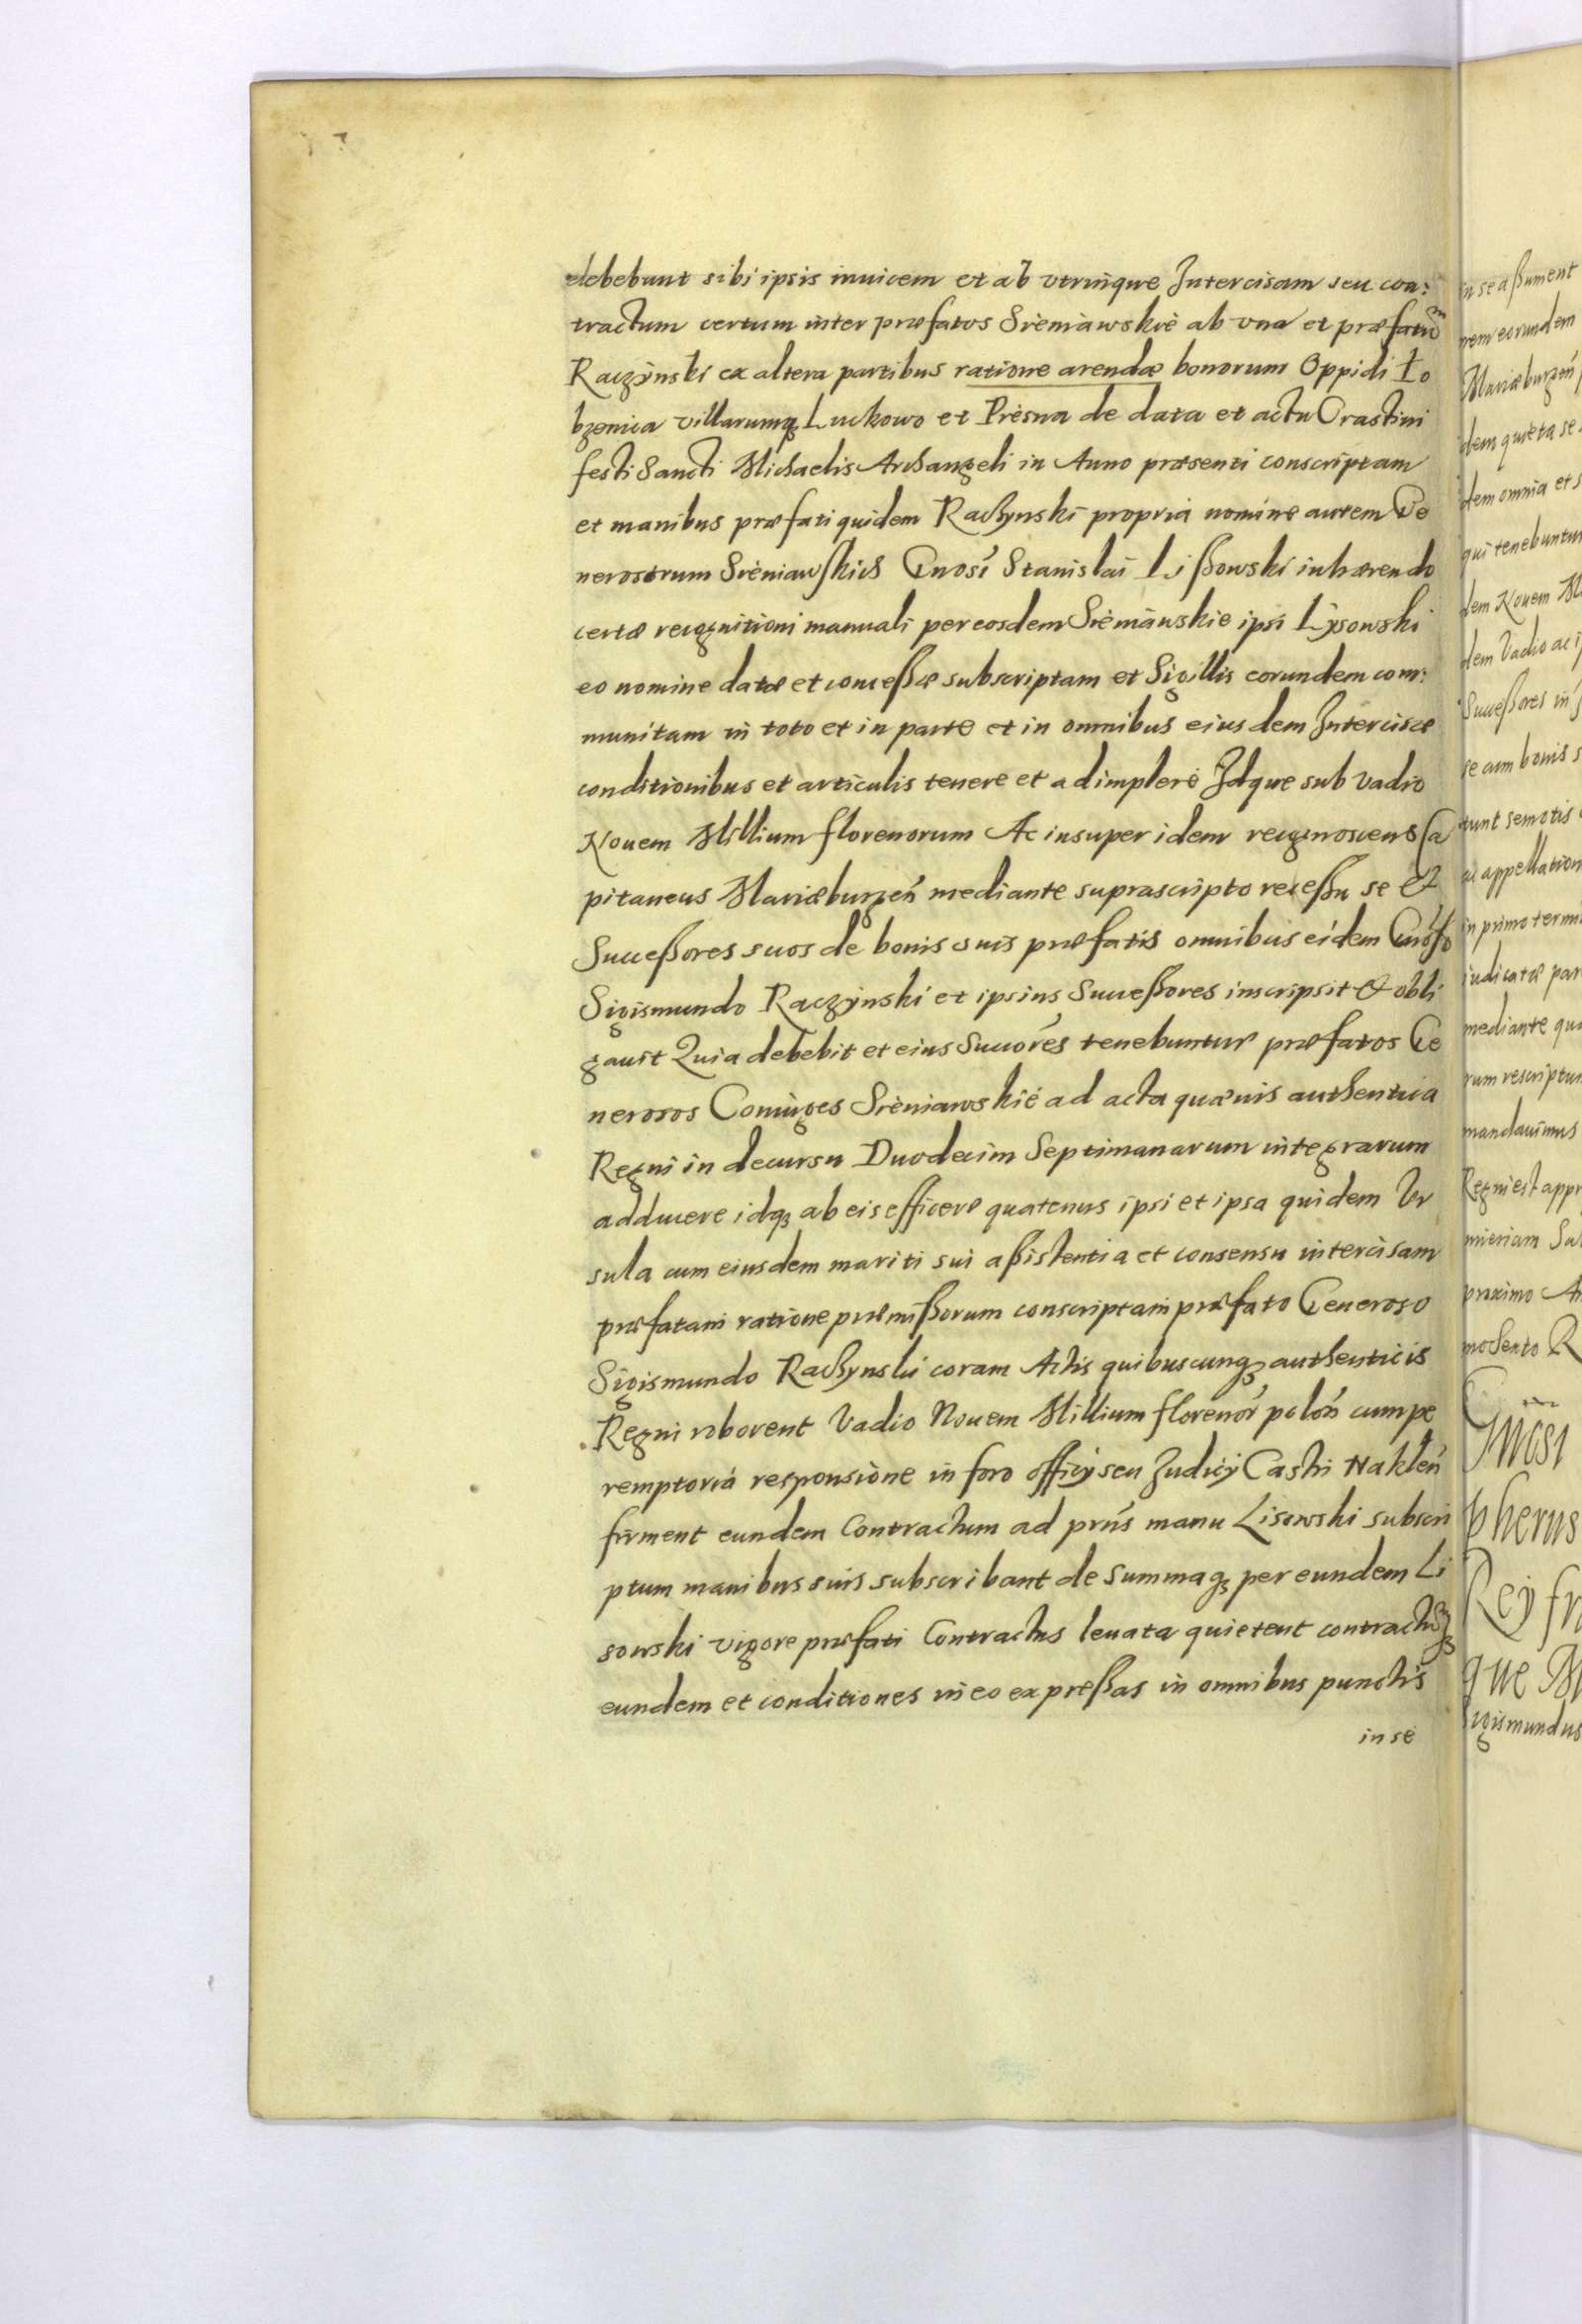 debebunt sibi ipsis inuicem et ab vtrinque Intercisam seu con:
tractum certum inter præfatos Sieniawskie ab vna et præfatū
Raczÿnski ex altera partibus ratione arendæ bonorum Oppidi Ło
bzenica villarumqȝ Luckowo et Piesna de data et actu Crastini
festi Sancti Michaelis Archangeli in Anno præsenti conscriptam
et manibus præfati quidem Raczynski propria nomine autem Ge
nerosorum Sieniawskich Gnosi Stanislai Lißowski inhærendo
certæ recognitioni manuali per eosdem Sieniawskie ipsi Lÿsowski
eo nomine datæ et conceßæ subscriptam et Sigillis eorundem com:
munitam in toto et in parte et in omnibus eiusdem Intercisæ
conditionibus et articulis tenere et adimplere Idque sub vadio
Nouem Millium florenorum Ac insuper idem recognoscens Ca
pitaneus Mariæburgeñ mediante suprascripto receßu se et
Succeßores suos de bonis suis præfatis omnibus eidem Gnoso
Sigismundo Raczÿnski et ipsius Succeßores inscripsit & obli
gauit Quia debebit et eius Succores tenebuntur præfatos Ge
nerosos Coniuges Sieniawskie ad acta quæuis authentica
Regni in decursu Duodecim Septimanarum integrarum
adducere idqȝ ab eis efficere quatenus ipsi et ipsa quidem Vr
sula cum eiusdem mariti sui aßistentia et consensu intercisam
præfatam ratione præmißorum conscriptam præfato Generoso
Sigismundo Raczynski coram Actis quibuscunqȝ authenticis
Regni roborent Vadio Nouem Millium florenor polon cum pe
remptoria responsione in foro officÿ seu Iudicÿ Castri Nakleñ
firment eundem Contractum ad prius manu Lisowski subscri
ptum manibus suis subscribant de Summaqȝ per eundem Li
sowski vigore præfati Contractus leuata quietent contractūqȝ
eundem et conditiones in eo expreßas in omnibus punctis
in se
in se aßument
nem eorundem
Mariæburgeñ
dem quieta se
dem omnia et s
qui tenebuntur
dem Nouem M
dem Vadio ac i
Succeßores in
se cum bonis s
tunt semotis
ac appellation
in primo termi
iudicatæ par
mediante qua
rum rescriptum
mandauimus
Regni est appr
mieriam Sa
proximo A
R
Gnosi
pherus
Reÿ fr
que M
Sigismundus